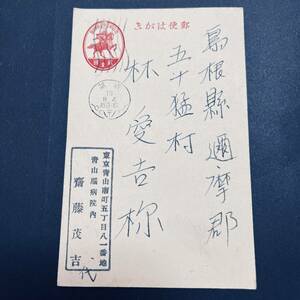 郵便はがき
島根縣邇摩郡
五十猛村
林愛吉様
東京青山南町五丁目八一番地
青山脳病院内
齋藤茂吉
代